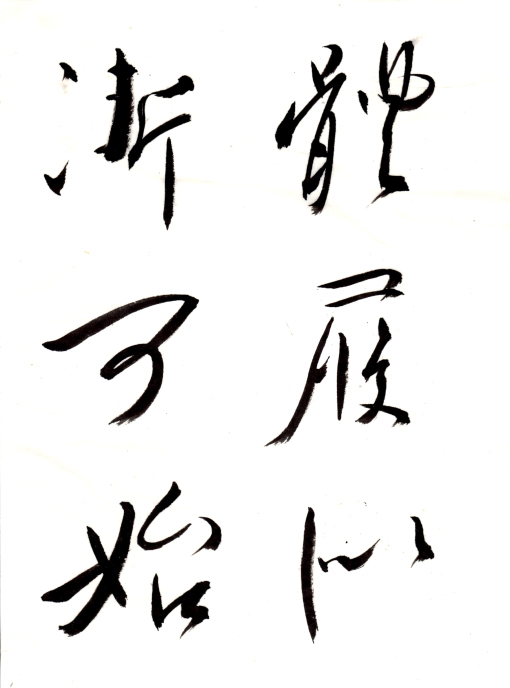 體履似
漸可始